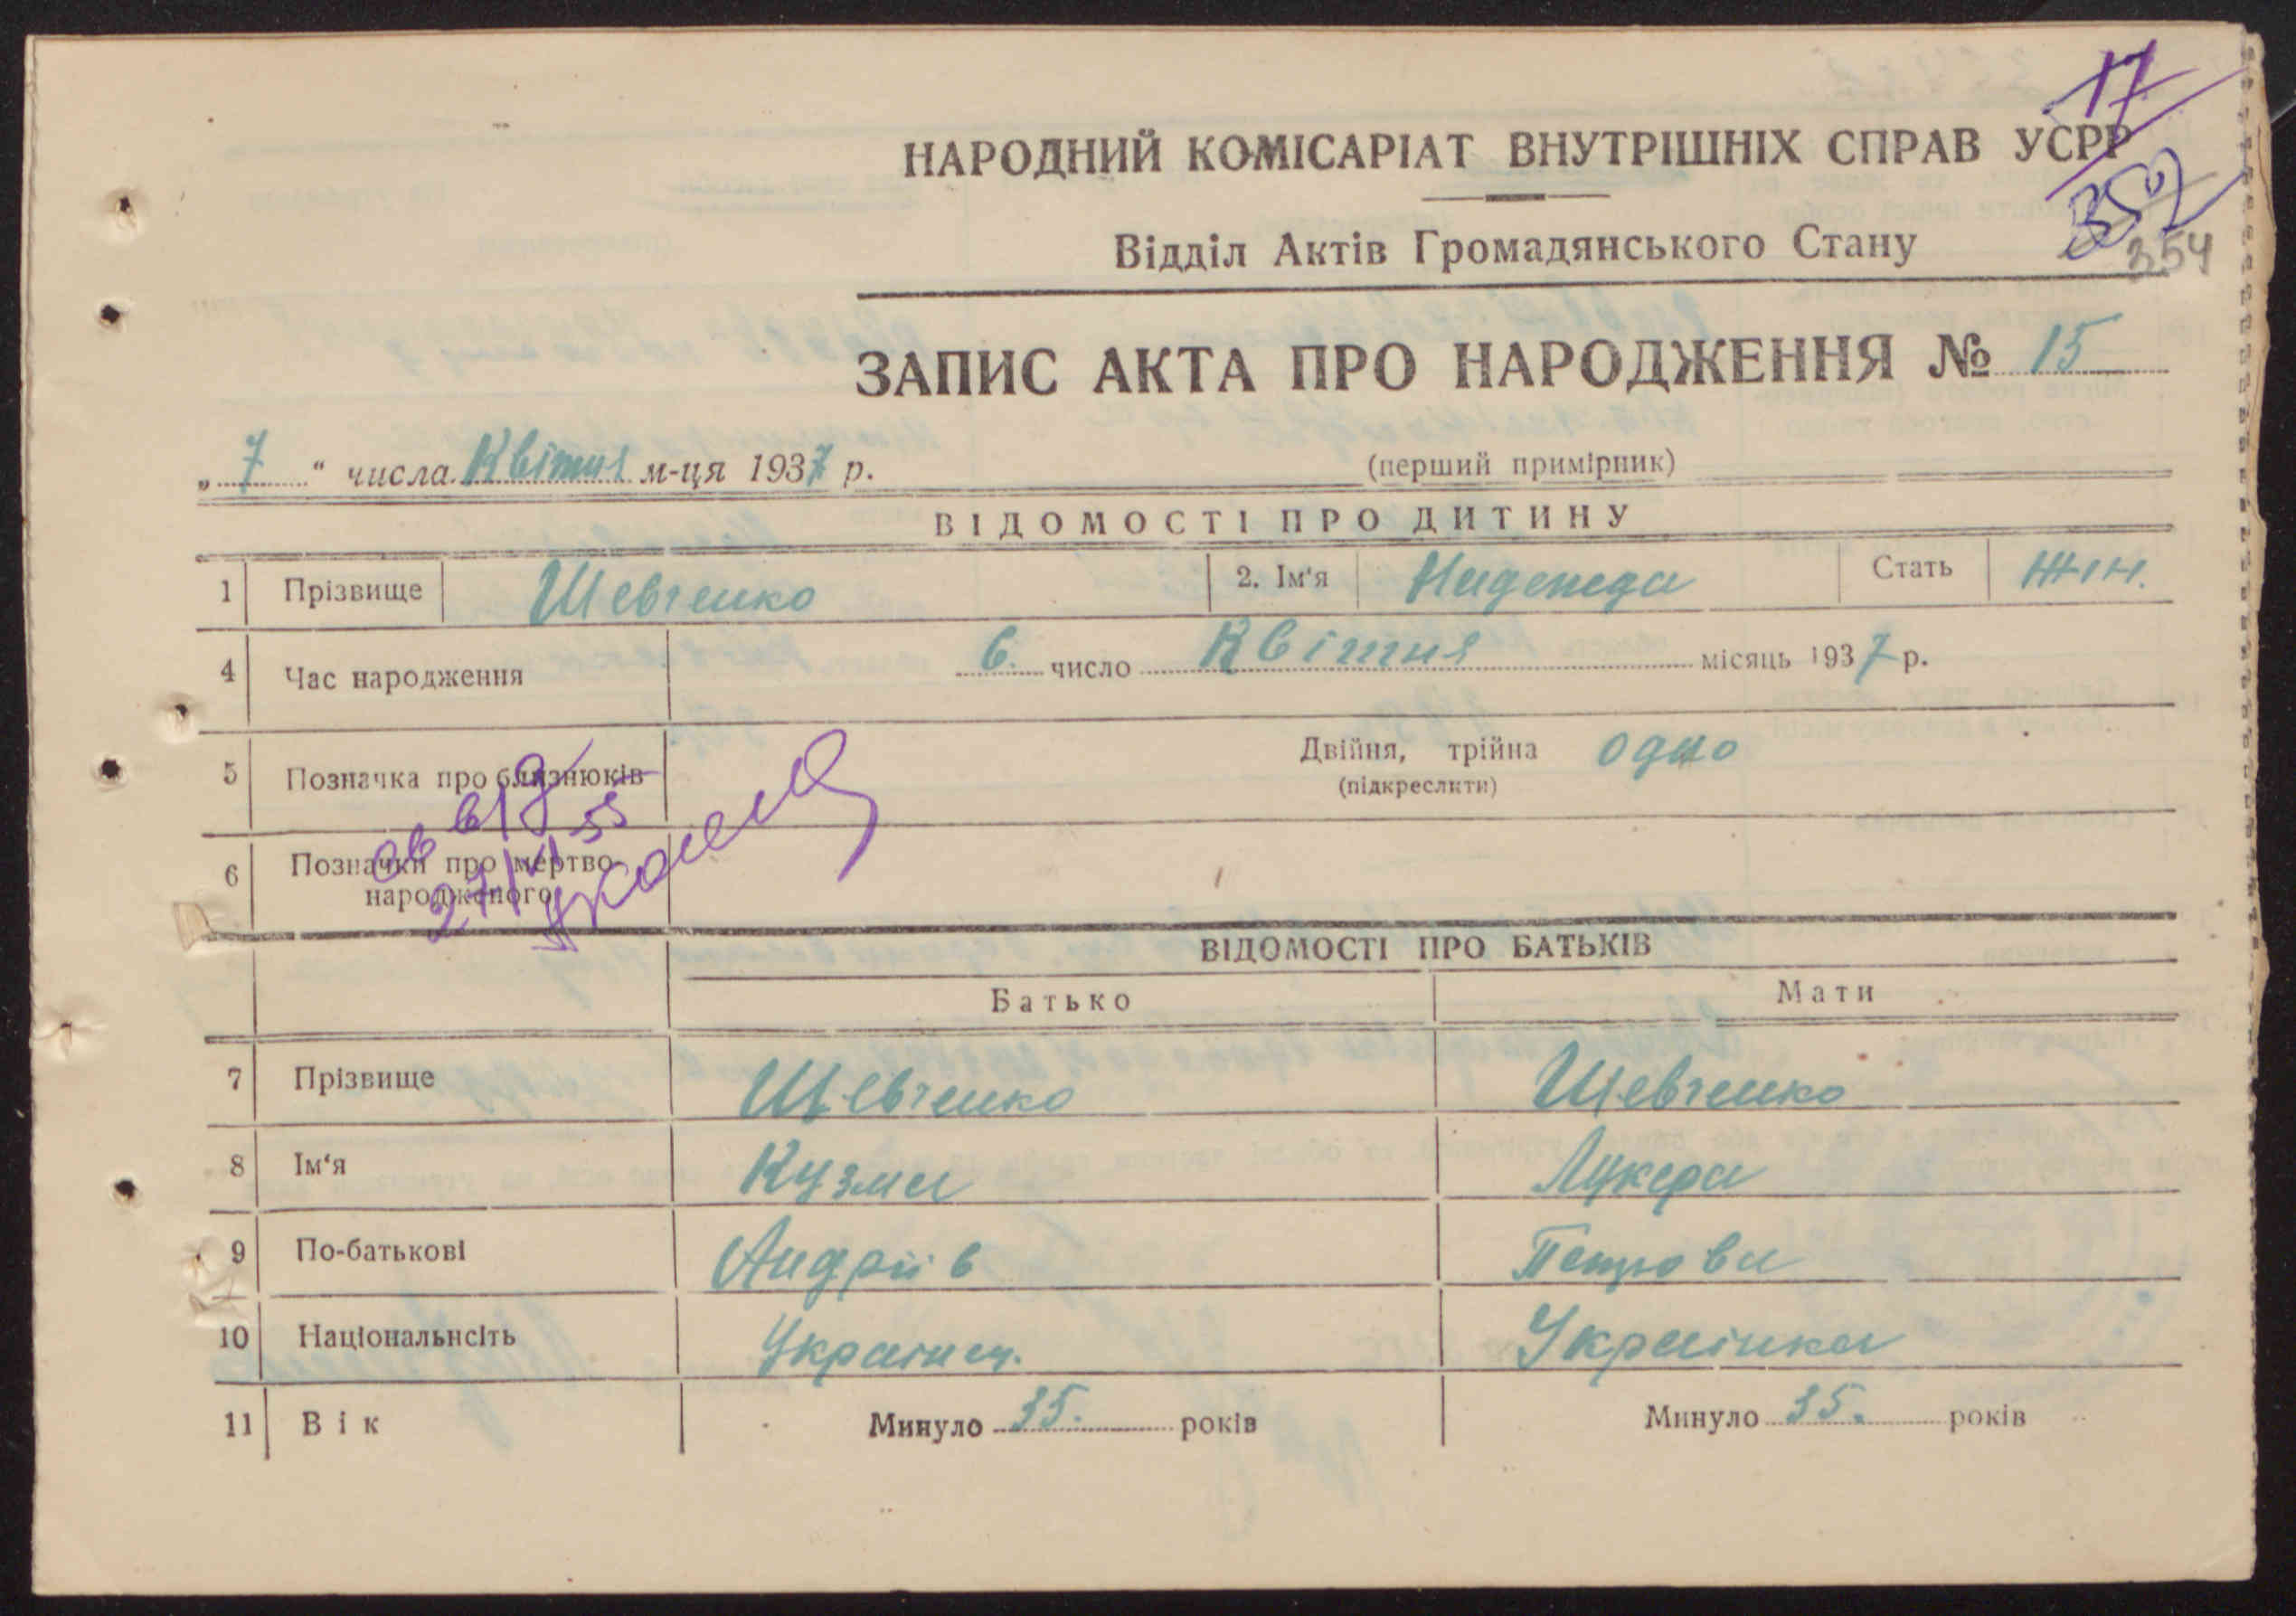 17
352
354
НАРОДНИЙ КОМІСАРІАТ ВНУТРІШНІХ СПРАВ УСРР
Відділ Актів Громадянського Стану
ЗАПИС АКТА ПРО НАРОДЖЕННЯ № 15
„ 7 “ числа Квітня м-ця 1937 р. (перший примірник)
ВІДОМОСТІ ПРО ДИТИНУ
1 Прізвище Шевченко 2. Ім'я Надежда Стать жін.
4 Час народження 6. число Квітня місяць 1937 р.
5 Позначка про близнюків Двійня, трійна одно
(підкреслити)
6 Позначки про мертво-
народженого
27/VI 55
ВІДОМОСТІ ПРО БАТЬКІВ
Батько Мати
7 Прізвище Шевченко Шевченко
8 Ім'я Кузма Лукера
9 По-батькові Андріїв Петрова
10 Національнсіть Українец. Українка
11 Вік Минуло 35. років Минуло 35. років